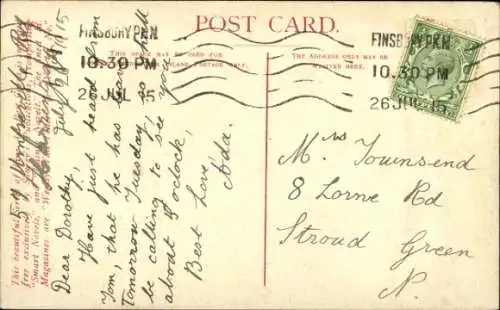 POST CARD.
FINSBURY P.K.N.
10.30 PM
26 JUL 15
FINSBURY P.K.N
10.30 PM
26 JUL 15
THIS SPACE MAY BE USED FOR
INLAND POSTAGE ONLY
THE ADDRESS ONLY MAY BE
WRITTEN HERE.
July 26th 1915
Dear Dorothy,
Have just heard from
Tom, that he has leave till
Tomorrow Tuesday, so
be calling to see you
about 8 o'clock,
Best Love
Ada.
Mrs Townsend
8 Lorne Rd
Stroud Green
N.
This beautiful Series of
free exclusively with
"Smart Novels," and
Magazines are